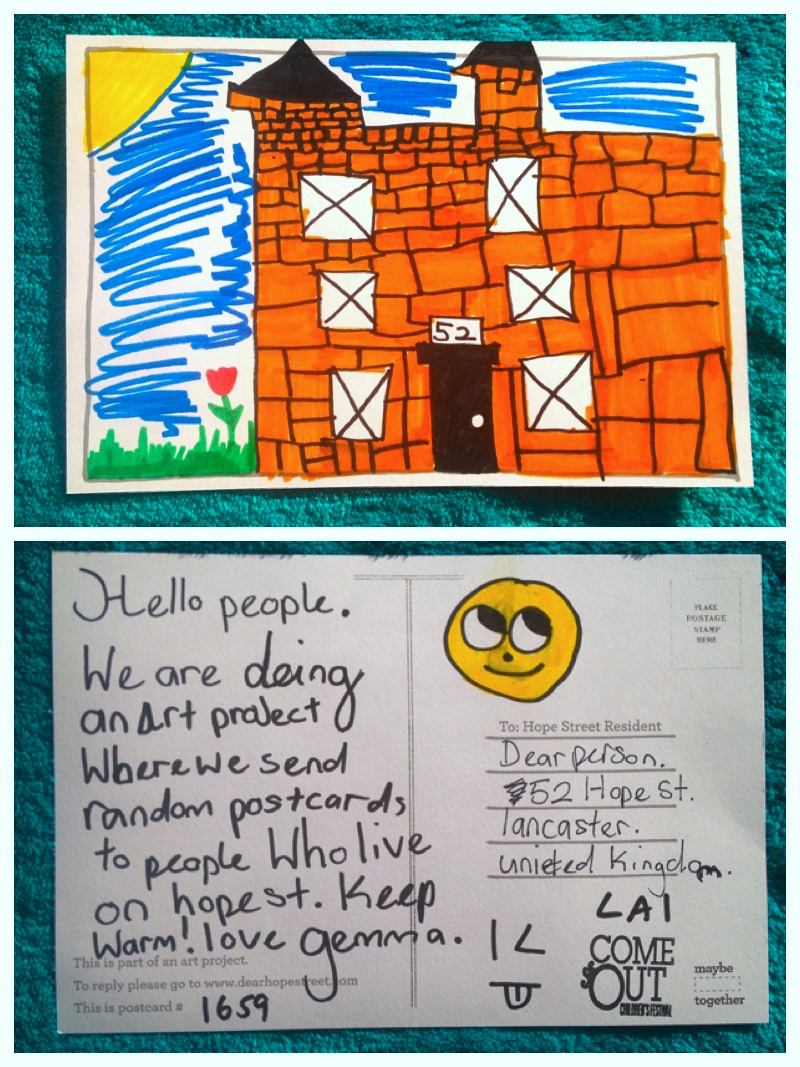 52
Hello people.
We are doing
an Art project
Where we send
random postcards
to people Who live
on hope st. Keep
Warm! love gemma.
This is part of an art project.
To reply please go to www.dearhopestreet.com
This is postcard # 1659
PLACE
POSTAGE
STAMP
HERE
To: Hope Street Resident
Dear person.
52 Hope St.
lancaster.
unieted Kingdom.
LA1
COME
OUT
CHILDREN'S FESTIVAL
maybe
together